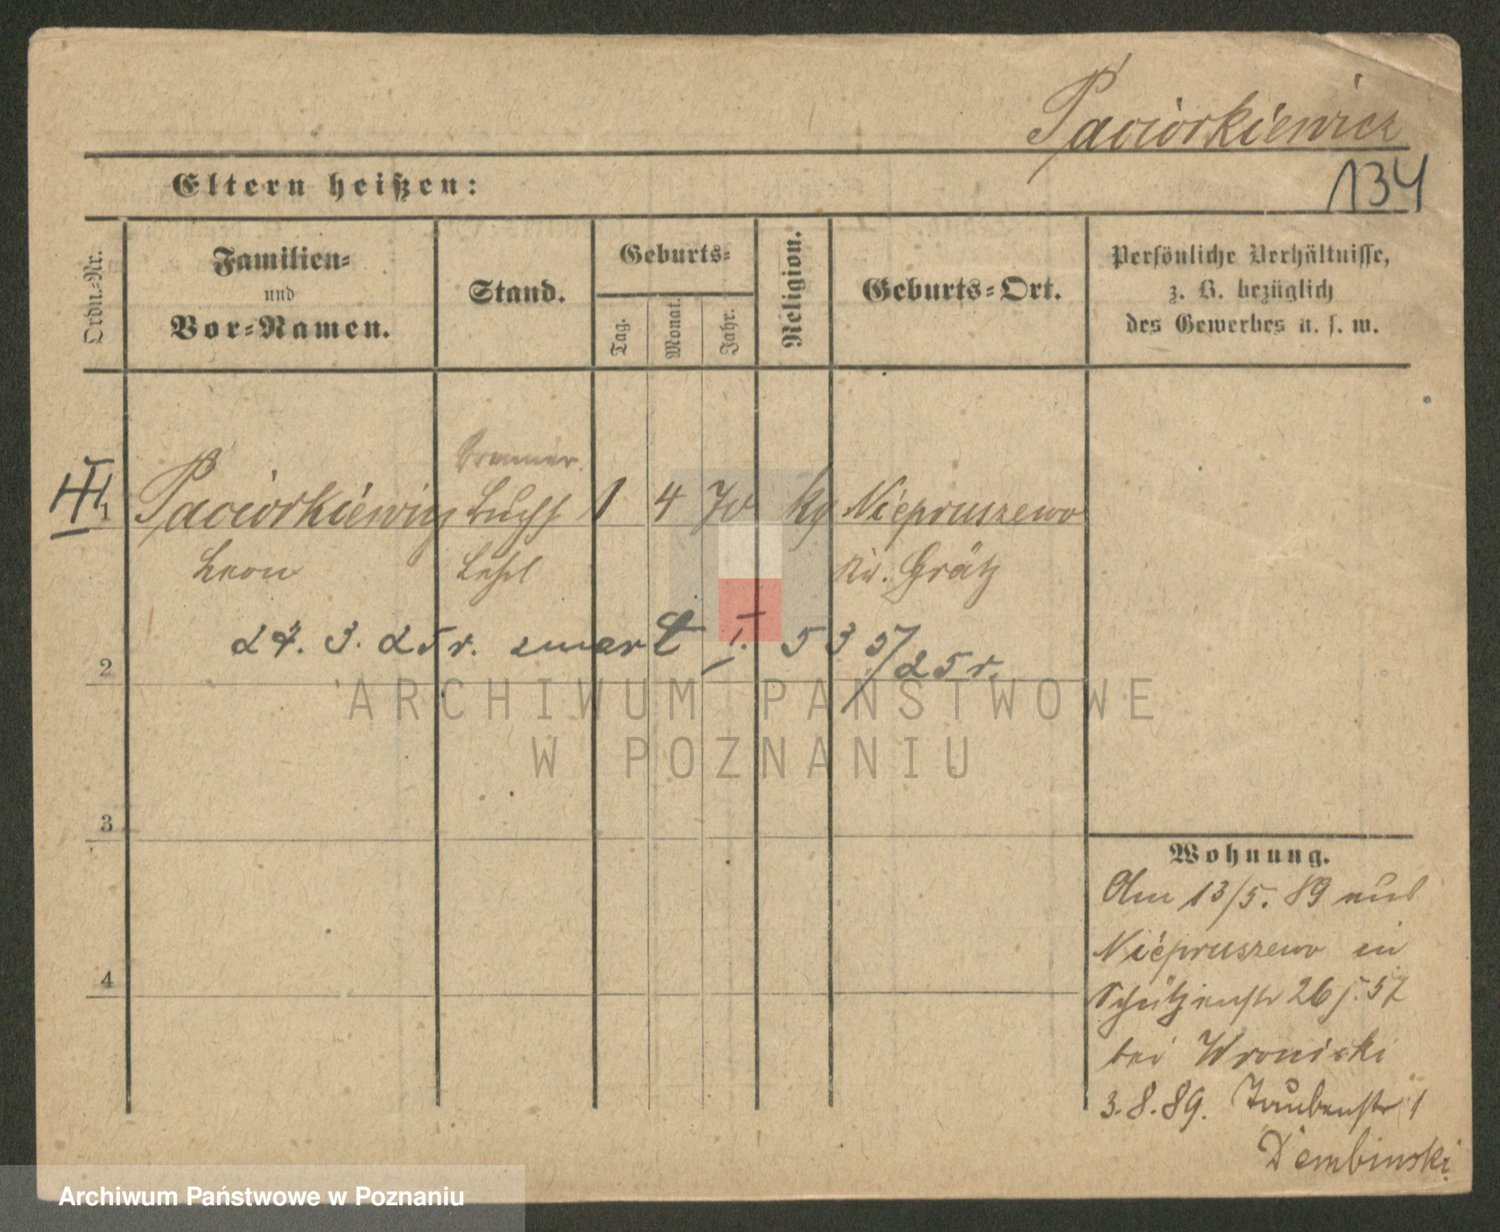 Paciorkiewicz
134
Eltern heißen:
Ordn.-Nr.
Familien-
und
Vor-Namen.
Stand.
Geburts-
Tag.
Monat.
Jahr.
Religion.
Geburts-Ort.
Persönliche Verhältnisse,
z. B. bezüglich
des Gewerbes u. s. w.
1 Paciorkiewicz 1 4 70 kg Niepruszewo
Leon Kr. Grätz
27. 3. 25 r. zmarł I. 535/25 r.
2
3
4
Wohnung.
Am 13/5. 89 aus
Niepruszewo in
Schützenstr 26
bei Wronicki
3.8.89. Taubenstr 1
Dembinski
ARCHIWUM PAŃSTWOWE
W POZNANIU
Archiwum Państwowe w Poznaniu